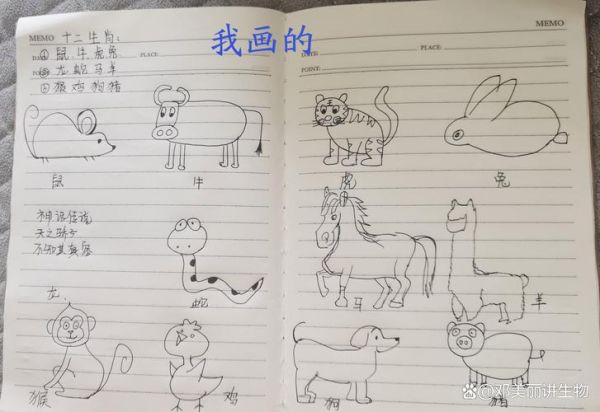 我画的
MEMO
十二生肖:
DATE: PLACE:
①鼠牛虎兔
POINT: ②龙蛇马羊
③猴鸡狗猪
鼠
牛
神话传说
天之骄子
不知其真容
龙、
蛇
猴
鸡
MEMO
DATE: PLACE:
POINT:
虎
兔
马
羊
狗
猪
@邓美丽讲生物